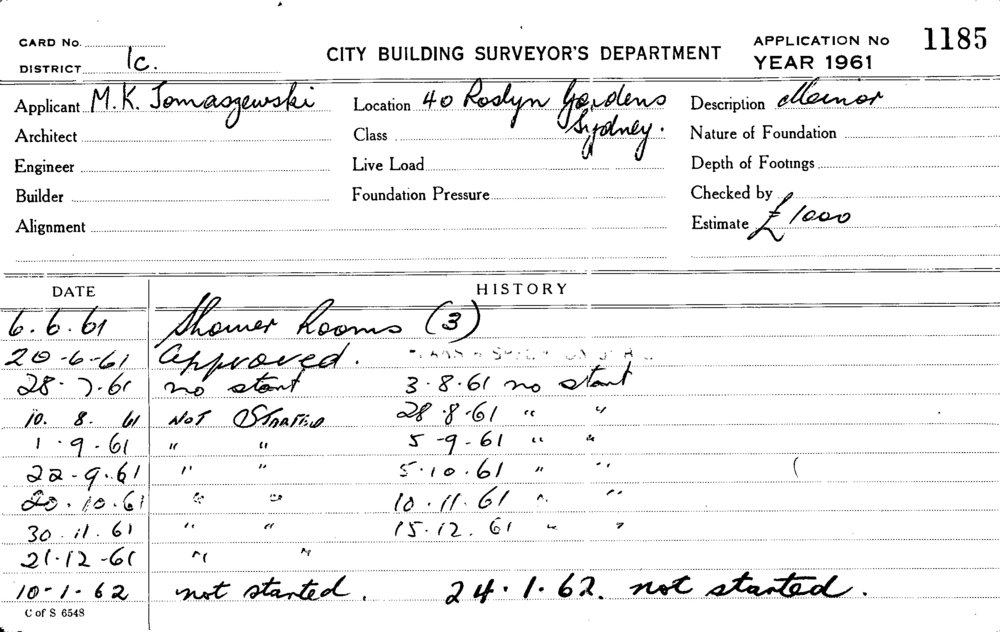 CARD No.
DISTRICT 1c.
CITY BUILDING SURVEYOR'S DEPARTMENT
APPLICATION No 1185
YEAR 1961
Applicant M.K. Tomaszewski Location 40 Roslyn Gardens Description Minor
Architect Class Sydney. Nature of Foundation
Engineer Live Load Depth of Footings
Builder Foundation Pressure Checked by
Alignment Estimate £1000
DATE HISTORY
6.6.61 Shower Rooms (3)
20-6-61 Approved.
28.7.61 no start 3.8.61 no start
10. 8. 61 NOT STARTED 28.8.61 " "
1.9.61 " " 5-9-61 " "
22-9.61 " " 5.10.61 " "
20.10.61 " " 10.11.61 " "
30.11.61 " " 15.12.61 " "
21.12-61 " "
10-1-62 not started. 24.1.62. not started.
C of S 6548